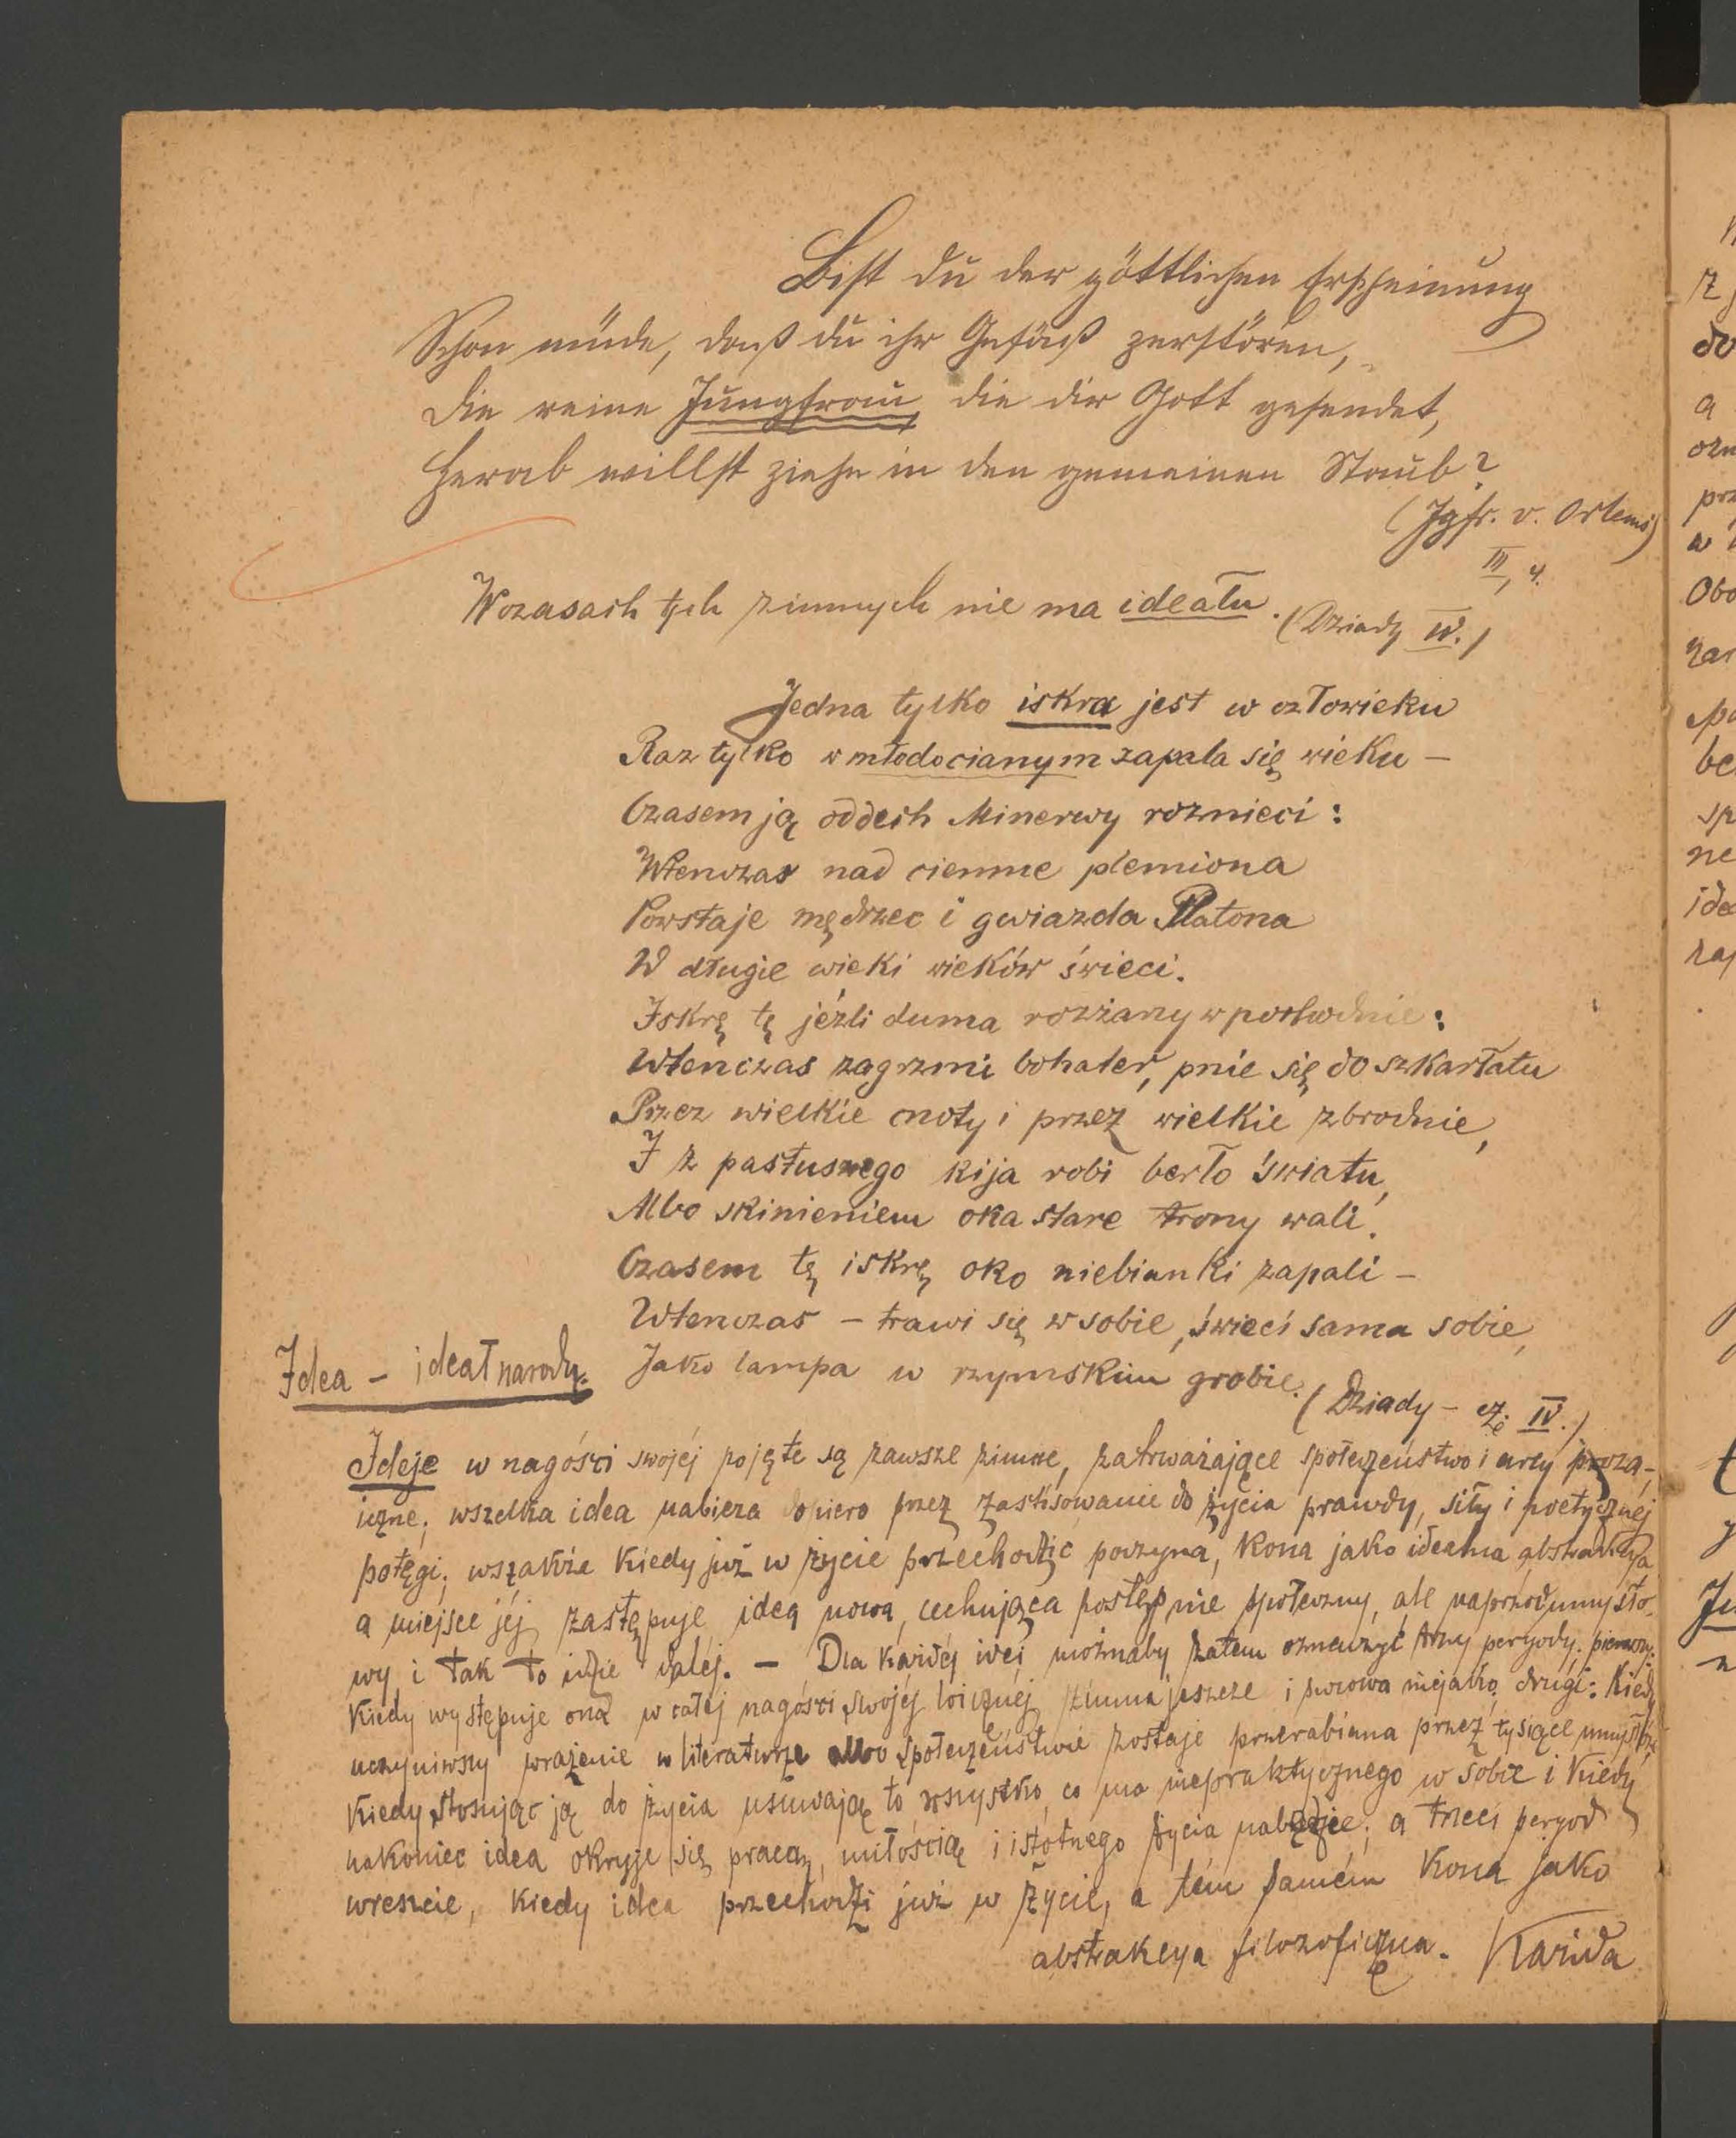 Bist du der göttlichen Erscheinung
Schon müde, daß du ihr Gefäß zerstören,
Die reine Jungfrau, die dir Gott gesendet,
Herab willst ziehn in den gemeinen Staub?
(Jgfr. v. Orleans)
III, 4.
W czasach tych zimnych nie ma ideału. (Dziady IV.)
Jedna tylko iskra jest w człowieku
Raz tylko w młodocianym zapala się wieku —
Czasem ją oddech Minerwy roznieci:
Wtenczas nad ciemne plemiona
Powstaje mędrzec i gwiazda Platona
W długie wieki wieków świeci.
Iskrę tę jeźli duma rozżarzy w pochodnie:
Wtenczas zagrzmi bohater, pnie się do szkarłatu
Przez wielkie cnoty i przez wielkie zbrodnie,
I z pastuszego kija robi berło światu,
Albo skinieniem oka stare trony wali.
Czasem tę iskrę oko niebianki zapali —
Wtenczas — trawi się w sobie, świeci sama sobie,
Jako lampa w rzymskim grobie.
(Dziady — cz. IV.)
Idea — ideał narodu.
Ideje w nagości swojéj pojęte są zawsze zimne, zatrważające społeczeństwo i arcy proza-
iczne; wszelka idea nabiera dopiero przez zastósowanie do życia prawdy, siły i poetycznéj
potęgi; wszakże kiedy już w życie przechodzić poczyna, kona jako idealna abstrakcya
a miejsce jéj zastępuje idea nowa, cechująca postęp nie społeczny, ale naprzód umysło-
wy, i tak to idzie daléj. — Dla każdéj idei możnaby zatem oznaczyć trzy peryody; pierwszy:
Kiedy występuje ona w całéj nagości swojéj loicznéj zimna jeszcze i surowa niejako, drugi: Kiedy
uczyniwszy wrażenie w literaturze albo społeczeństwie zostaje przerabiana przez tysiące
Kiedy stosując ją do życia usuwają to wszystko, co ma niepraktycznego w sobie i kiedy
nakoniec idea okryje się pracą, miłością i istotnego życia nabędzie; a trzeci peryod
wreszcie, kiedy idea przechodzi już w życie, a tém samém kona jako
abstrakcya filozoficzna.